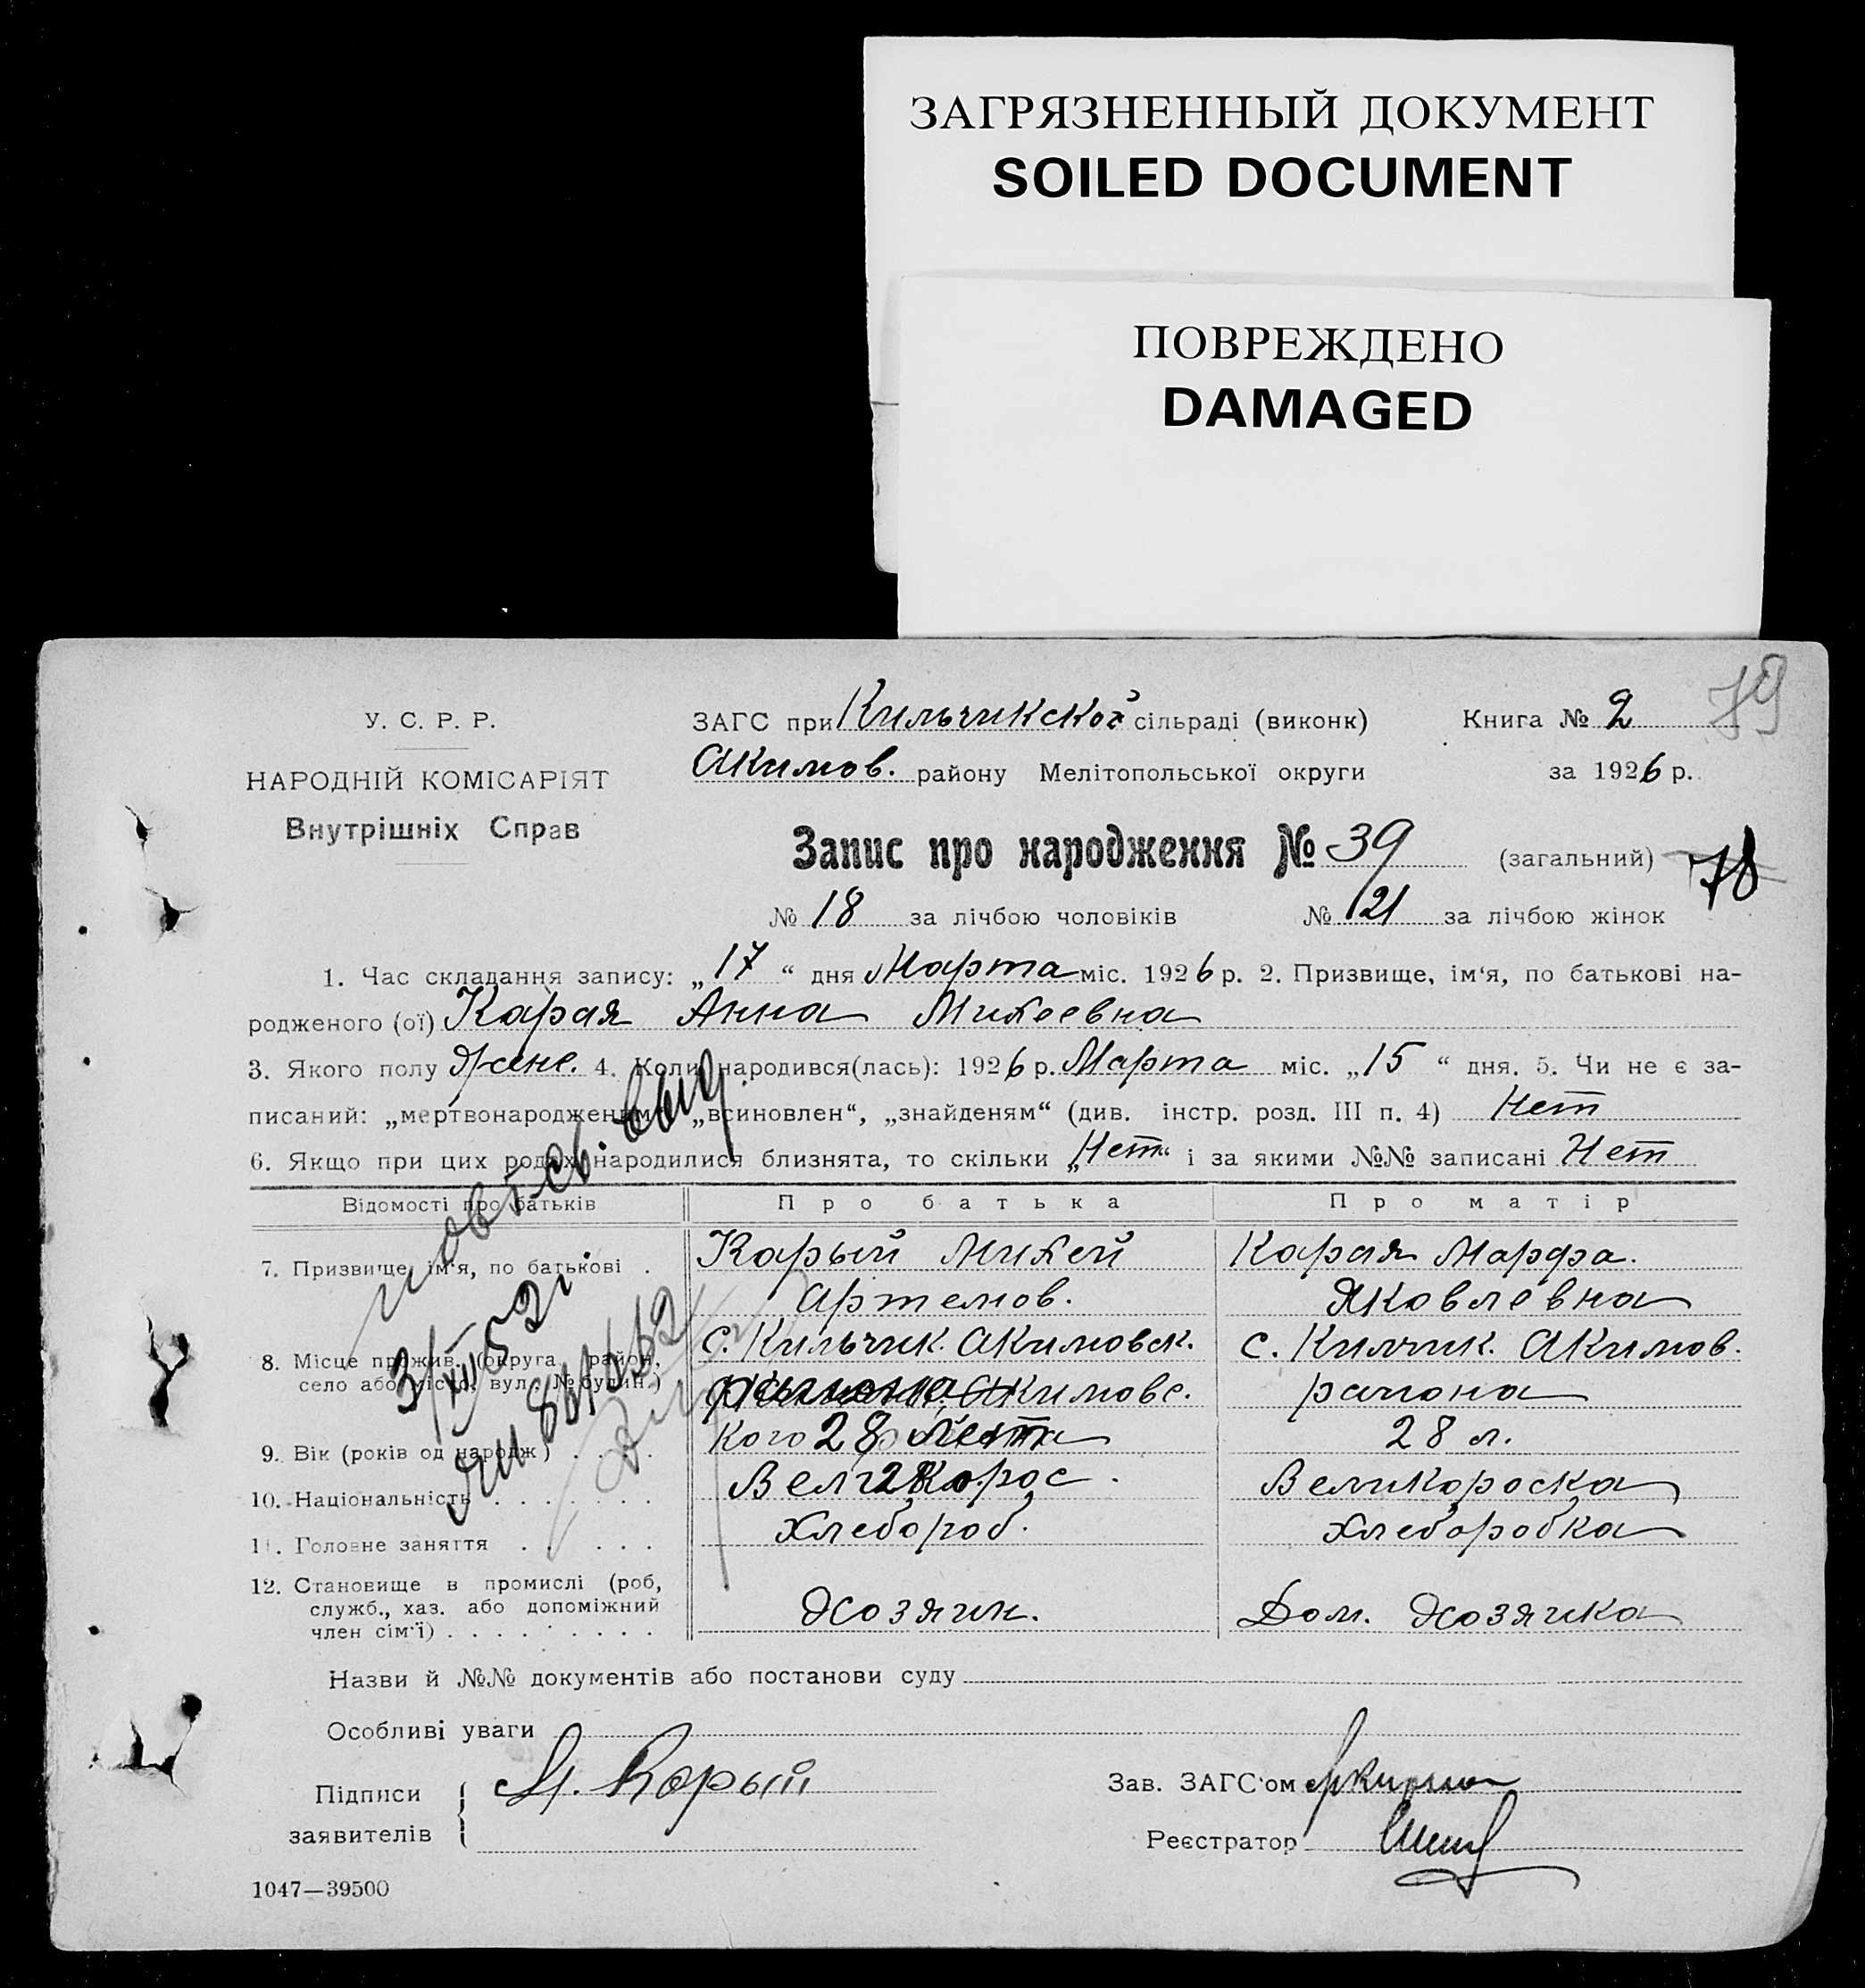 ЗАГРЯЗНЕННЫЙ ДОКУМЕНТ
SOILED DOCUMENT
ПОВРЕЖДЕНО
DAMAGED
79
У. С. Р. Р.
НАРОДНІЙ КОМІСАРІЯТ
Внутрішніх Справ
ЗАГС при Кильчикской сільраді (виконк) Книга № 2
Акимов. району Мелітопольської округи за 1926 р.
Запис про народження № 39 (загальний) 78
№ 18 за лічбою чоловіків № 21 за лічбою жінок
1. Час складання запису: „17“ дня Марта міс. 1926 р. 2. Призвище, ім‘я, по батькові на-
родженого (ої) Карая Анна Михеевна
3. Якого полу Женс. 4. Коли народився(лась): 1926 р. Марта міс. „15“ дня. 5. Чи не є за-
писаний: „мертвонародженим“ „всиновлен“, „знайденям“ (див. інстр. розд. III п. 4) Нет
6. Якщо при цих родах народилися близнята, то скільки „Нет“ і за якими №№ записані Нет
Відомості про батьків Про батька Про матір
7. Призвище, ім‘я, по батькові . Карый Михей Карая Марфа.
Артемов. Яковлевна
8. Місце прожив. (округа, район, с. Кильчик. Акимовск. с. Килчик. Акимов.
село або місто, вул. № будин.) Акимовс. района
9. Вік (років од народж) . . . . кого 28 лет 28 л.
10. Національність . . . . . . . Великорос. Великороска
11. Головне заняття . . . . . Хлебороб. Хлеборобка
12. Становище в промислі (роб,
служб., хаз. або допоміжний Хозяин. Дом. Хозяйка
член сім‘ї) . . . . . . . . .
Назви й №№ документів або постанови суду
Особливі уваги
Підписи М. Карый Зав. ЗАГС‘ом
заявителів Реєстратор
1047—39500